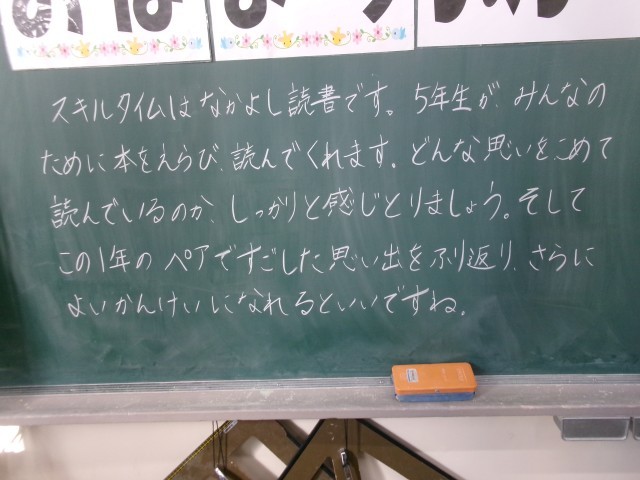 スキルタイムはなかよし読書です。5年生が、みんなの
ために本をえらび、読んでくれます。どんな思いをこめて
読んでいるのか、しっかりと感じとりましょう。そして
この1年のペアですごした思い出をふり返り、さらに
よいかんけいになれるといいですね。